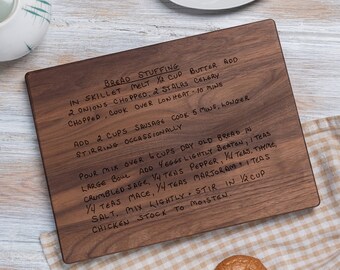 BREAD STUFFING
IN SKILLET MELT ½ CUP BUTTER ADD
2 ONIONS CHOPPED, 2 STALKS CELERY
CHOPPED, COOK OVER LOW HEAT - 10 MINS
ADD 2 CUPS SAUSAGE COOK 5 MINS, LONGER
STIRRING OCCASSIONALLY
POUR MIX OVER 6 CUPS DAY OLD BREAD IN
LARGE BOWL ADD 4 EGGS LIGHTLY BEATEN, 1 TEAS
CRUMBLED SAGE, ¼ TEAS PEPPER, ¼ TEAS. THYME,
¼ TEAS MACE, ¼ TEAS MARJORAM & 1 TEAS
SALT. MIX LIGHTLY & STIR IN ½ CUP
CHICKEN STOCK TO MOISTEN